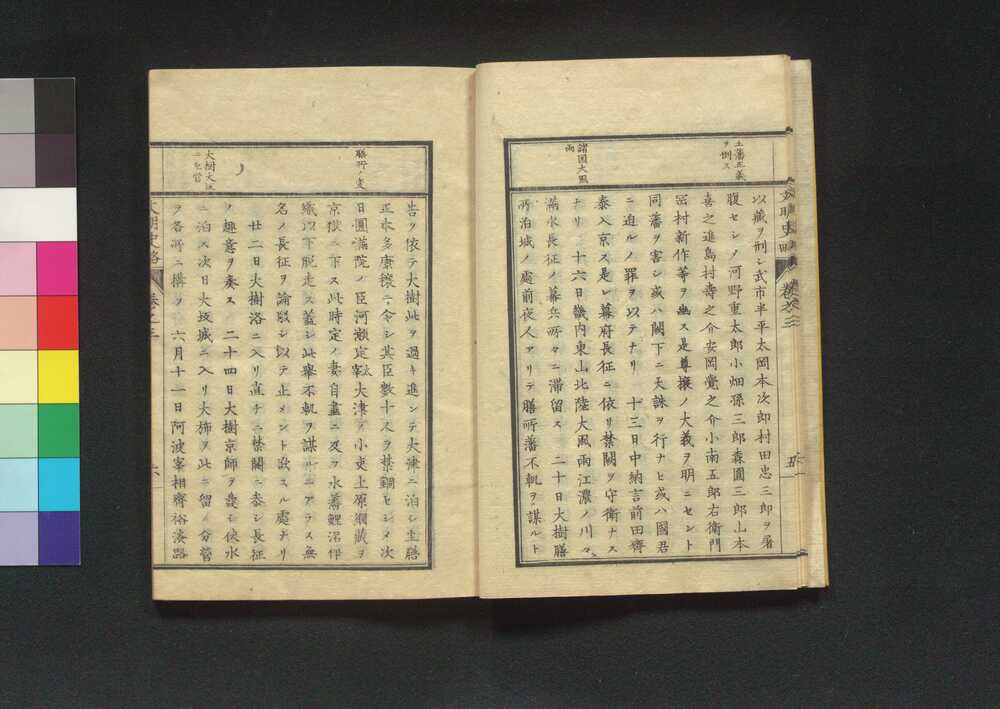 文明史略 卷之三
五
土藩正義
ヲ刑ス
以藏ヲ刑シ武市半平太岡本次郎村田忠三郎ヲ屠
腹セシノ河野重太郎小畑孫三郎森圓三郎山本
喜之進島村壽之介安岡覺之介小南五郎右衛門
宮村新作等ヲ幽ス是尊攘ノ大義ヲ明ニセント
同藩ヲ害シ或ハ闕下ニ天誅ヲ行ナヒ或ハ國君
ニ迫ルノ罪ヲ以テナリ 十三日中納言前田齊
泰入京ス是レ幕府長征ニ依リ禁闕ヲ守衛ナス
諸国大風
雨
ナリ 十六日畿内東山北陸大風雨江濃ノ川々
滿水長征ノ幕兵所々ニ滞留ス 二十日大樹膳
所泊城ノ處前夜人アリテ膳所藩不軌ヲ謀ルト
告ク依テ大樹此ヲ過キ進シテ大津ニ泊シ主膳
正本多康穰ニ令シ其臣數十人ヲ禁錮セシメ次
膳所ノ変
日圓滿院ノ臣河瀬定宰太大津ノ小吏上原綱藏ヲ
京獄ニ下ス此時定ノ妻自盡ニ及フ水蕃鯉沼伊
織以下脱走ス蓋シ此擧不軌ヲ謀ルニアラス無
名ノ長征ヲ論駁シ以テ止メント欲スル處ナリ
廿二日大樹洛ニ入リ直チニ禁闕ニ参シ長征
ノ趣意ヲ奏ス 二十四日大樹京師ヲ發シ伏水
大樹大坂
ニ泊ス次日大坂城ニ入リ大旆ヲ此ニ留メ分營
ヲ各所ニ構フ 六月十一日阿波宰相齊裕湊路
文明史略 卷之三
六